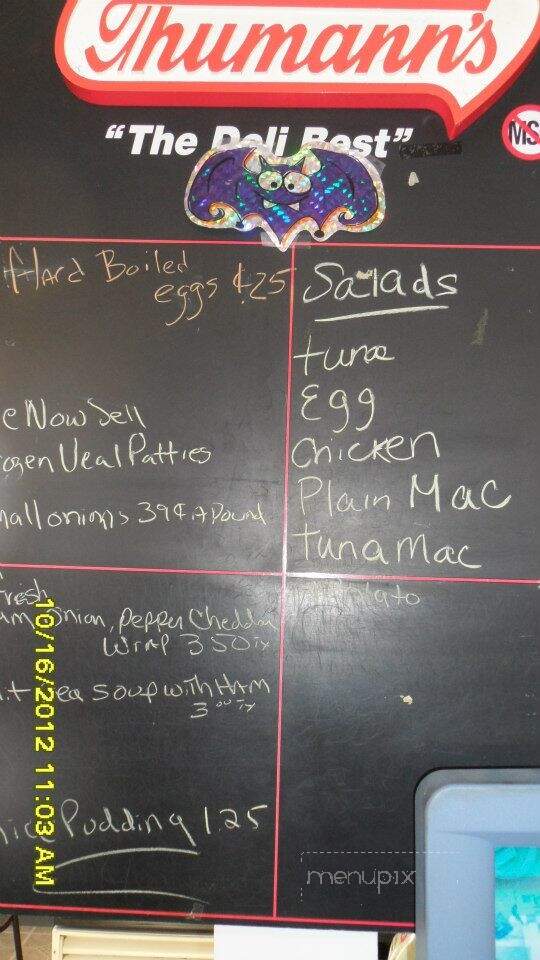 Thumann's
"The Deli Best"
MS
Hard Boiled
eggs ¢25
e Now Sell
ozen Veal Patties
mall onions 39¢ a Pound
resh
am, Onion, Pepper Cheddar
Wrap 3.50 tx
it ea soup with HAM
3.00 tx
ice Pudding 1.25
Salads
tuna
Egg
Chicken
Plain Mac
tuna Mac
10/16/2012 11:03 AM
menupix